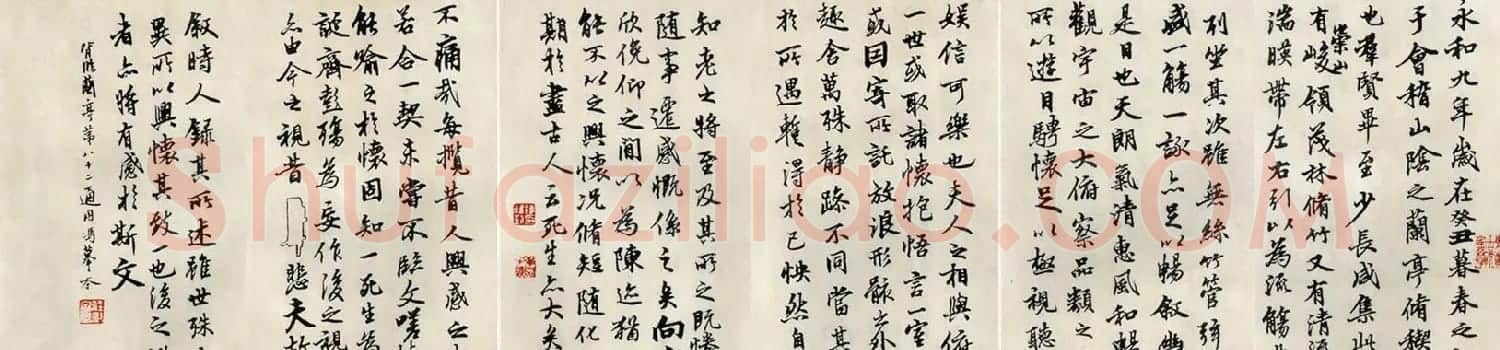 永和九年歲在癸丑暮春之
于會稽山陰之蘭亭脩禊
也羣賢畢至少長咸集此
有崇山峻領茂林脩竹又有清流
湍暎帶左右引以為流觴
列坐其次雖無絲竹管弦
盛一觴一詠亦足以暢敘幽
是日也天朗氣清惠風和暢
觀宇宙之大俯察品類之
所以遊目騁懷足以極視聽
娛信可樂也夫人之相與俯
一世或取諸懷抱悟言一室
或因寄所託放浪形骸之外
趣舍萬殊靜躁不同當其
於所遇蹔得於己怏然自
知老之將至及其所之既惓
隨事遷感慨係之矣向
欣俛仰之閒以為陳迹猶
能不以之興懷況脩短隨化
期於盡古人云死生亦大矣
不痛哉每攬昔人興感之
若合一契未嘗不臨文嗟
能喻之於懷固知一死生為
誕齊彭殤為妄作後之視
亦由今之視昔悲夫故
敘時人錄其所述雖世殊
異所以興懷其致一也後之
者亦將有感於斯文
背臨蘭亭第八十二通
Shufaziliao.com